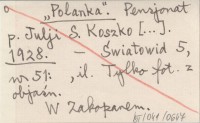 „Polanka". Pensjonat
p. Julji S. Koszko [...].
1928. — Światowid 5,
nr 51: , il. Tylko fot. z
objaśn.
W Zakopanem.
BJ/041/0667